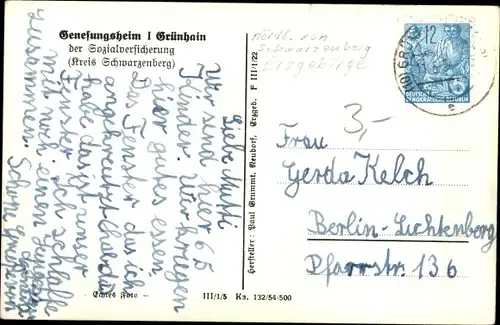 Genesungsheim I Grünhain
der Sozialversicherung
(Kreis Schwarzenberg)
nördl. von
Schwarzenberg
Erzgebirge
12
DEUTSCHE
DEMOKRATISCHE REPUBLIK
3,-
Liebe Mutti
Wir sind hier 65
Kinder. Wir kriegen
hier gutes essen
Das Fenster das ich
angekreuzt habe
das ist unser
Fenster ich schlafe
mit noch einen Jungen
zusammen.
Schöne Grüße von
Frau
Gerda Kelch
Berlin-Lichtenberg
Pfarrstr. 136
Hersteller: Paul Grummt, Neudorf, Erzgeb. F III/1/22
- Echtes Foto -
III/1/5 Ka. 132/54/500